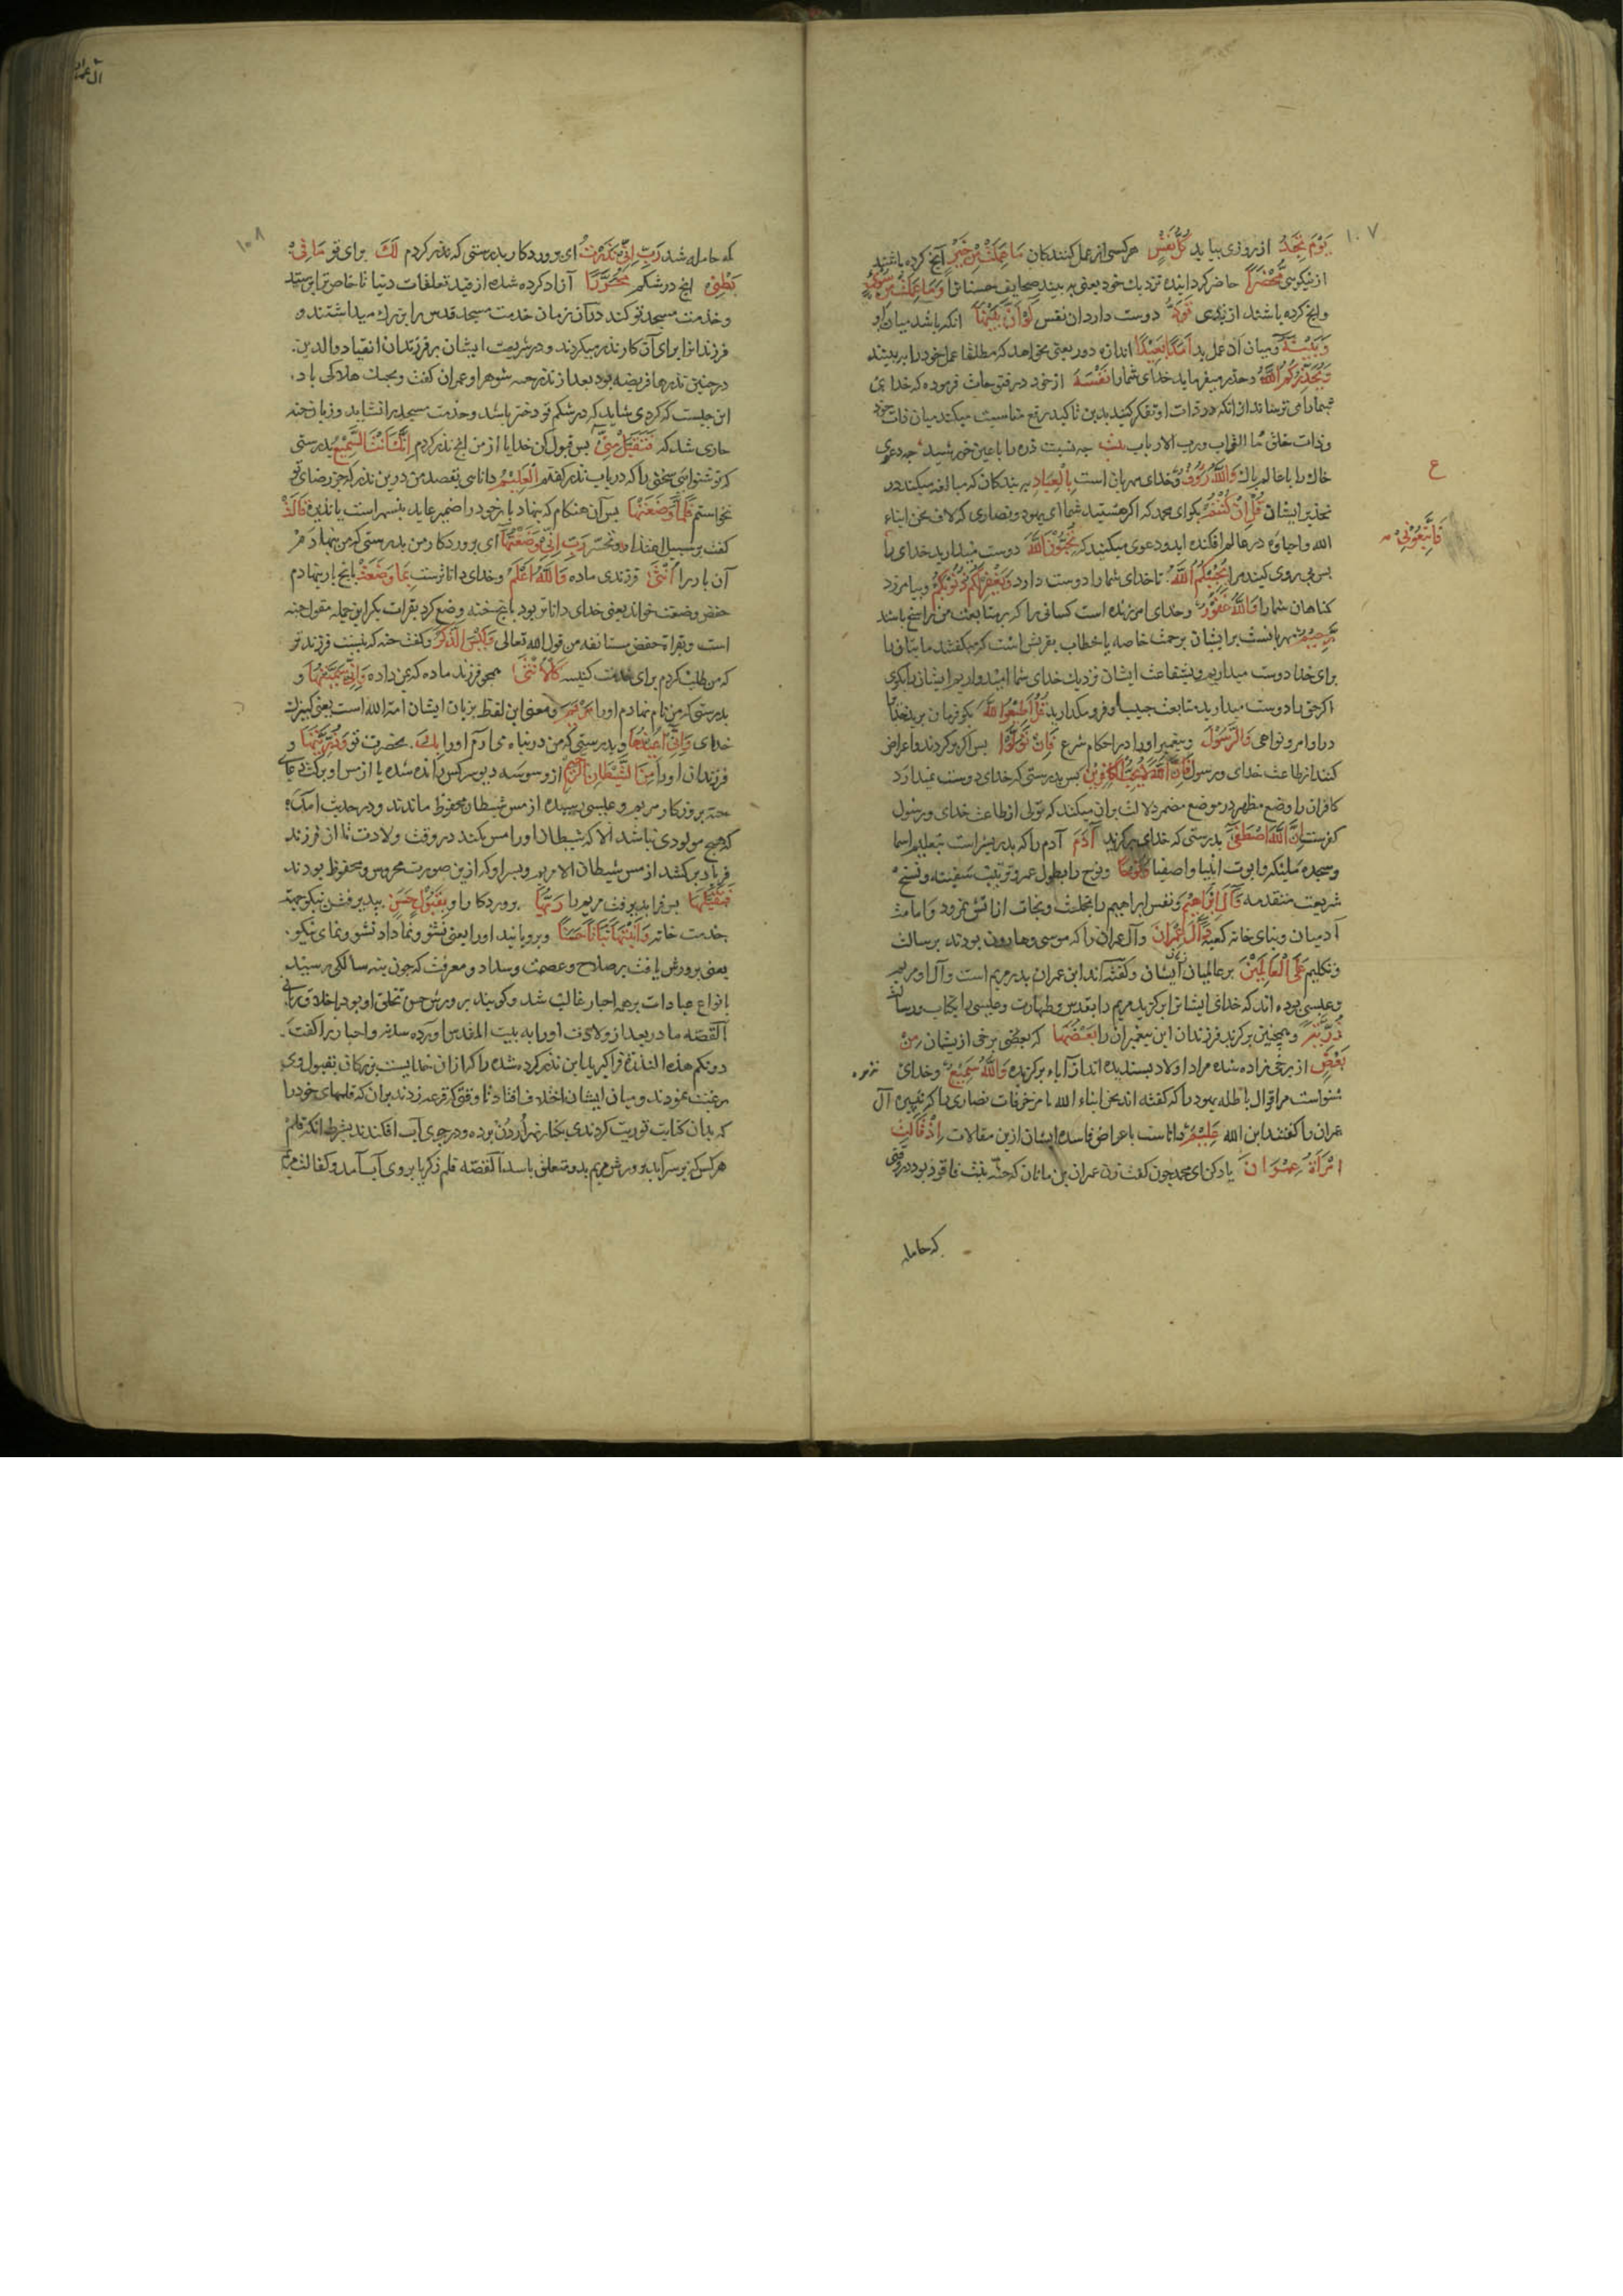 ١٠٧
يَوْمَ تَجِدُ از روزی بیابد كُلُّ نَفْسٍ هر کسی از عمل کنندکان مَا عَمِلَتْ مِنْ خَيْرٍ آنچ کرده باشند
از نیکویی مُحْضَرًا حاضر کردانیده نزدیك خود یعنی به بیند صحایف حسناترا وَمَا عَمِلَتْ مِنْ سُوءٍ
وانچ کرده باشند از بدی تَوَدُّ دوست دارد ان نفس لَوْ أَنَّ بَيْنَهَا انکه باشد میان او
وَبَيْنَهُ و میان آن عمل بد أَمَدًا بَعِيدًا اندازه دور یعنی نخواهد که مطلقا عمل خود را به بیند
وَيُحَذِّرُكُمُ اللَّهُ وحذر میفرماید خدای شمارا نَفْسَهُ از خود
ما للتراب ورب الارباب چه نسبت ذره را با عین خورشید
خاك را با عالم پاك وَاللَّهُ رَؤُوفٌ و خدای مهربان است بِالْعِبَادِ به بندکان که مبالغه میکند در
تحذیر ایشان قُلْ إِنْ كُنْتُمْ بکو ای محمد که اکر هستید شما ای یهود و نصاری که لاف نحن ابناء
الله واحباؤه در عالم افکنده اید و دعوی میکنید که تُحِبُّونَ اللَّهَ دوست میدارید خدای را
فَاتَّبِعُونِي
ع
پس پی روی کنید مرا يُحْبِبْكُمُ اللَّهُ تا خدای شمارا دوست دارد وَيَغْفِرْ لَكُمْ ذُنُوبَكُمْ و بیامرزد
کناهان شمارا وَاللَّهُ غَفُورٌ و خدای امرزنده است کسانی را که بر متابعت من راسخ باشند
رَحِيمٌ مهربانست بر ایشان برحمت خاصه یا خطاب بقریش است که میکفتند ما بتان را
برای خدا دوست میداریم و بشفاعت ایشان نزدیك خدای
اکر حق را دوست میدارید متابعت حبیب او فرو مکذارید قُلْ أَطِيعُوا اللَّهَ بکو فرمان برید خدایرا
در اوامر و نواهی وَالرَّسُولَ و پیغمبر اورا در احکام شرع فَإِنْ تَوَلَّوْا پس اکر برکردند و اعراض
کنند از طاعت خدای و رسول فَإِنَّ اللَّهَ لَا يُحِبُّ الْكَافِرِينَ پس بدرستی که خدای دوست نمیدارد
کافران را وضع مظهر در موضع مضمر دلالت بران میکند که تولی از طاعت خدای و رسول
کفرست إِنَّ اللَّهَ اصْطَفَى بدرستی که خدای برکزید آدَمَ آدم را که پدر بشراست بتعلیم اسما
و سجده ملیکه و ابوت انبیا و اصفیا وَنُوحًا و نوح را بطول عمر و ترتیب سفینه و نسخ
شریعت متقدمه وَآلَ إِبْرَاهِيمَ و نفس ابراهیم را بخلت و نجات از اتش نمرود و امامت
آدمیان و بنای خانه کعبه وَآلَ عِمْرَانَ و آل عمران را که موسی و هارون بودند برسالت
و تکلیم عَلَى الْعَالَمِينَ بر عالمیان ایشان و کفته اند ابن عمران پدر مریم است و آل او مریم
و عیسی بوده اند که خدای ایشانرا برکزید مریم را بتقدس و طهارت و عیسی را بکتاب و رسالت
ذُرِّيَّةً و همچنین برکزید فرزندان این پیغمبران را بَعْضُهَا که بعضی برخی از یشان مِنْ
بَعْضٍ از برخی زاده شده مراد اولاد پسندیده اند از آباء برکزیده وَاللَّهُ سَمِيعٌ و خدای
شنواست مر اقوال باطله یهود را که کفته اند نحن ابناء الله یا مزخرفات نصاری را که آل
عمران را کفتند ابن الله عَلِيمٌ داناست باعراض فاسده ایشان ازین مقالات إِذْ قَالَتِ
امْرَأَةُ عِمْرَانَ یاد کن ای محمد چون کفت زن عمران بن ماثان که حنه بنت فاقوذ بود در وقتی
که حامله
آل عمران
١٠٨
که حامله شد رَبِّ إِنِّي نَذَرْتُ ای پروردکار بدرستی که نذر کردم لَكَ برای تو مَا فِي
بَطْنِي انچ در شکم مُحَرَّرًا آزاد کرده شده از قید تعلقات دنیا تا خاص ترا پرستد
و خدمت مسجد تو کند دران زمان خدمت مسجد قدس را بزرك میداشتند و
فرزندانرا برای آن کار نذر میکردند و در شریعت ایشان بر فرزندان انقیاد والدین
در چنین نذرها فریضه بود بعد از نذر حنه شوهر او عمران کفت
این چیست که کردی شاید که در شکم تو دختر باشد و خدمت مسجد را نشاید و زبان حنه
جاری شد که فَتَقَبَّلْ مِنِّي پس قبول کن خدایا از من انچ نذر کردم إِنَّكَ أَنْتَ السَّمِيعُ بدرستی
که تو شنوایی سخنی را که در باب نذر کفتم الْعَلِيمُ دانایی بقصد من درین نذر که جز رضای تو
نخواستم فَلَمَّا وَضَعَتْهَا پس آن هنکام که بنهاد بار خود را ضمیر عاید بنسمه است یا نذیره قَالَتْ
کفت بر سبیل اعتذار و تحسر رَبِّ إِنِّي وَضَعْتُهَا ای پروردکار من بدرستی که من بنهادم
آن بار را أُنْثَى فرزندی ماده وَاللَّهُ أَعْلَمُ و خدای داناترست بِمَا وَضَعَتْ بانچ بار بنهادم
حفص وضعت خواند یعنی خدای داناتر بود بانچ حنه وضع کرد بقرات بکر این جمله مقول حنه
است و بقراة حفص مستانفه من قول الله تعالی وَلَيْسَ الذَّكَرُ و کفت حنه که نیست فرزند نر
که من طلب کردم برای خدمت کنیسه كَالْأُنْثَى همچو فرزند ماده که بمن داده وَإِنِّي سَمَّيْتُهَا و
بدرستی که من نام نهادم اورا مَرْيَمَ و معنی این لفظ بزبان ایشان امة الله است یعنی کنیزك
خدای وَإِنِّي أُعِيذُهَا و بدرستی که من در پناه می آرم اورا بِكَ بحضرت تو وَذُرِّيَّتَهَا و
فرزندان اورا مِنَ الشَّيْطَانِ الرَّجِيمِ از وسوسه دیو سرکش رانده شده یا از مس او برکت دعای
حنه بروزکار مریم و عیسی رسیده از مس شیطان محفوظ ماندند و در حدیث آمده
که هیچ مولودی نباشد الا که شیطان اورا مس بکند در وقت ولادت تا ان فرزند
فریاد برکشد از مس شیطان الا مریم و پسر او که ازین صورت محروس و محفوظ بودند
فَتَقَبَّلَهَا پس فرا پذیرفت مریم را رَبُّهَا پروردکار او بِقَبُولٍ حَسَنٍ بپذیرفتن نیکو بجهت
خدمت خانه وَأَنْبَتَهَا نَبَاتًا حَسَنًا و برویانید اورا یعنی نشو و نما داد نشو و نمای نیکو
یعنی پرورش یافت بر صلاح و عصمت و سداد و معرفت که چون بنه سالکی رسید
بانواع عبادات بر همه احبار غالب شد و کویند پرورش حسن تخلق او بود باخلاق ربانی
القصه مادر بعد از ولادت اورا به بیت المقدس اورده سدنه و احبار را کفت
دونکم هذه النذیرة فرا کیرید این نذر کرده شده را که از ان خدایست بزرکان بقبول وی
رغبت نمودند و میان ایشان اختلاف افتاد تا وقتی که قرعه زدند بران که قلمهای خود را
که بدان کتابت توریت کردندی بکنار نهر أُردن بوده و در جوی آب افکندند بشرط انکه قلم
هر کس که بر سر آید پرورش مریم بدو متعلق باشد القصه قلم زکریا بروی آب آمد و کفالت مریم